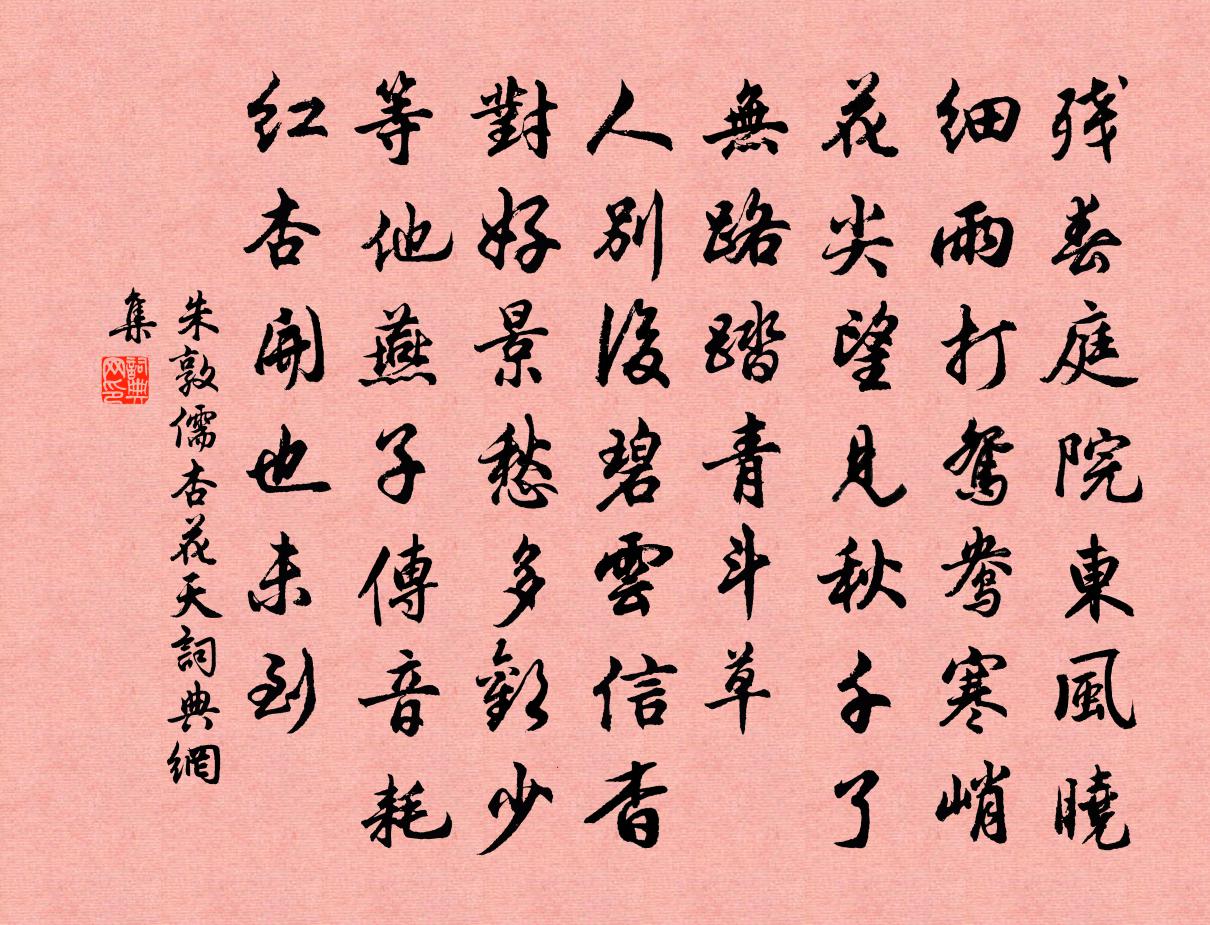 残春庭院東風曉
細雨打鴛鴦寒峭
花尖望見秋千了
無路踏青斗草
人別後碧雲信杳
對好景愁多歡少
等他燕子傳音耗
紅杏開也未到
朱敦儒杏花天詞典網
集
詞典
网印